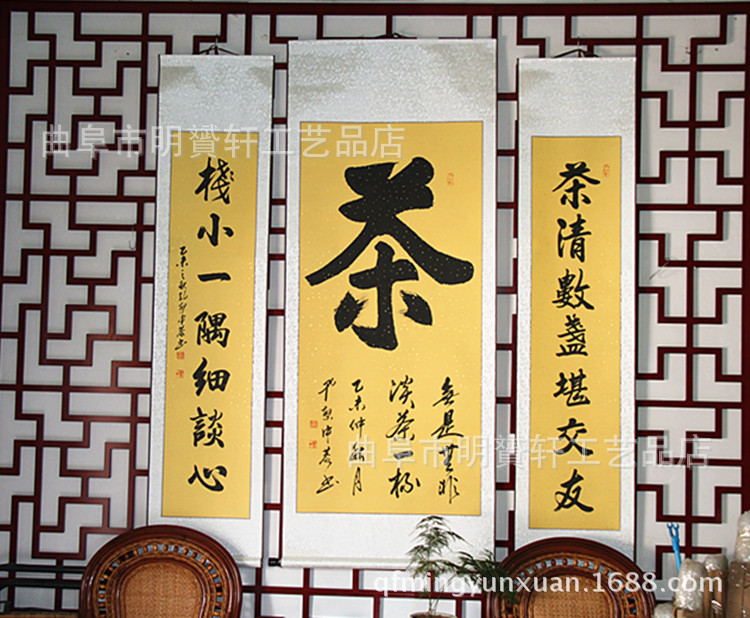 曲阜市明贇轩工艺品店
茶清數盞堪交友
茶
無是無非
淡茶一杯
乙未仲秋月
棧小一隅細談心
曲阜市明贇轩工艺品店
qfmingyunxuan.1688.com